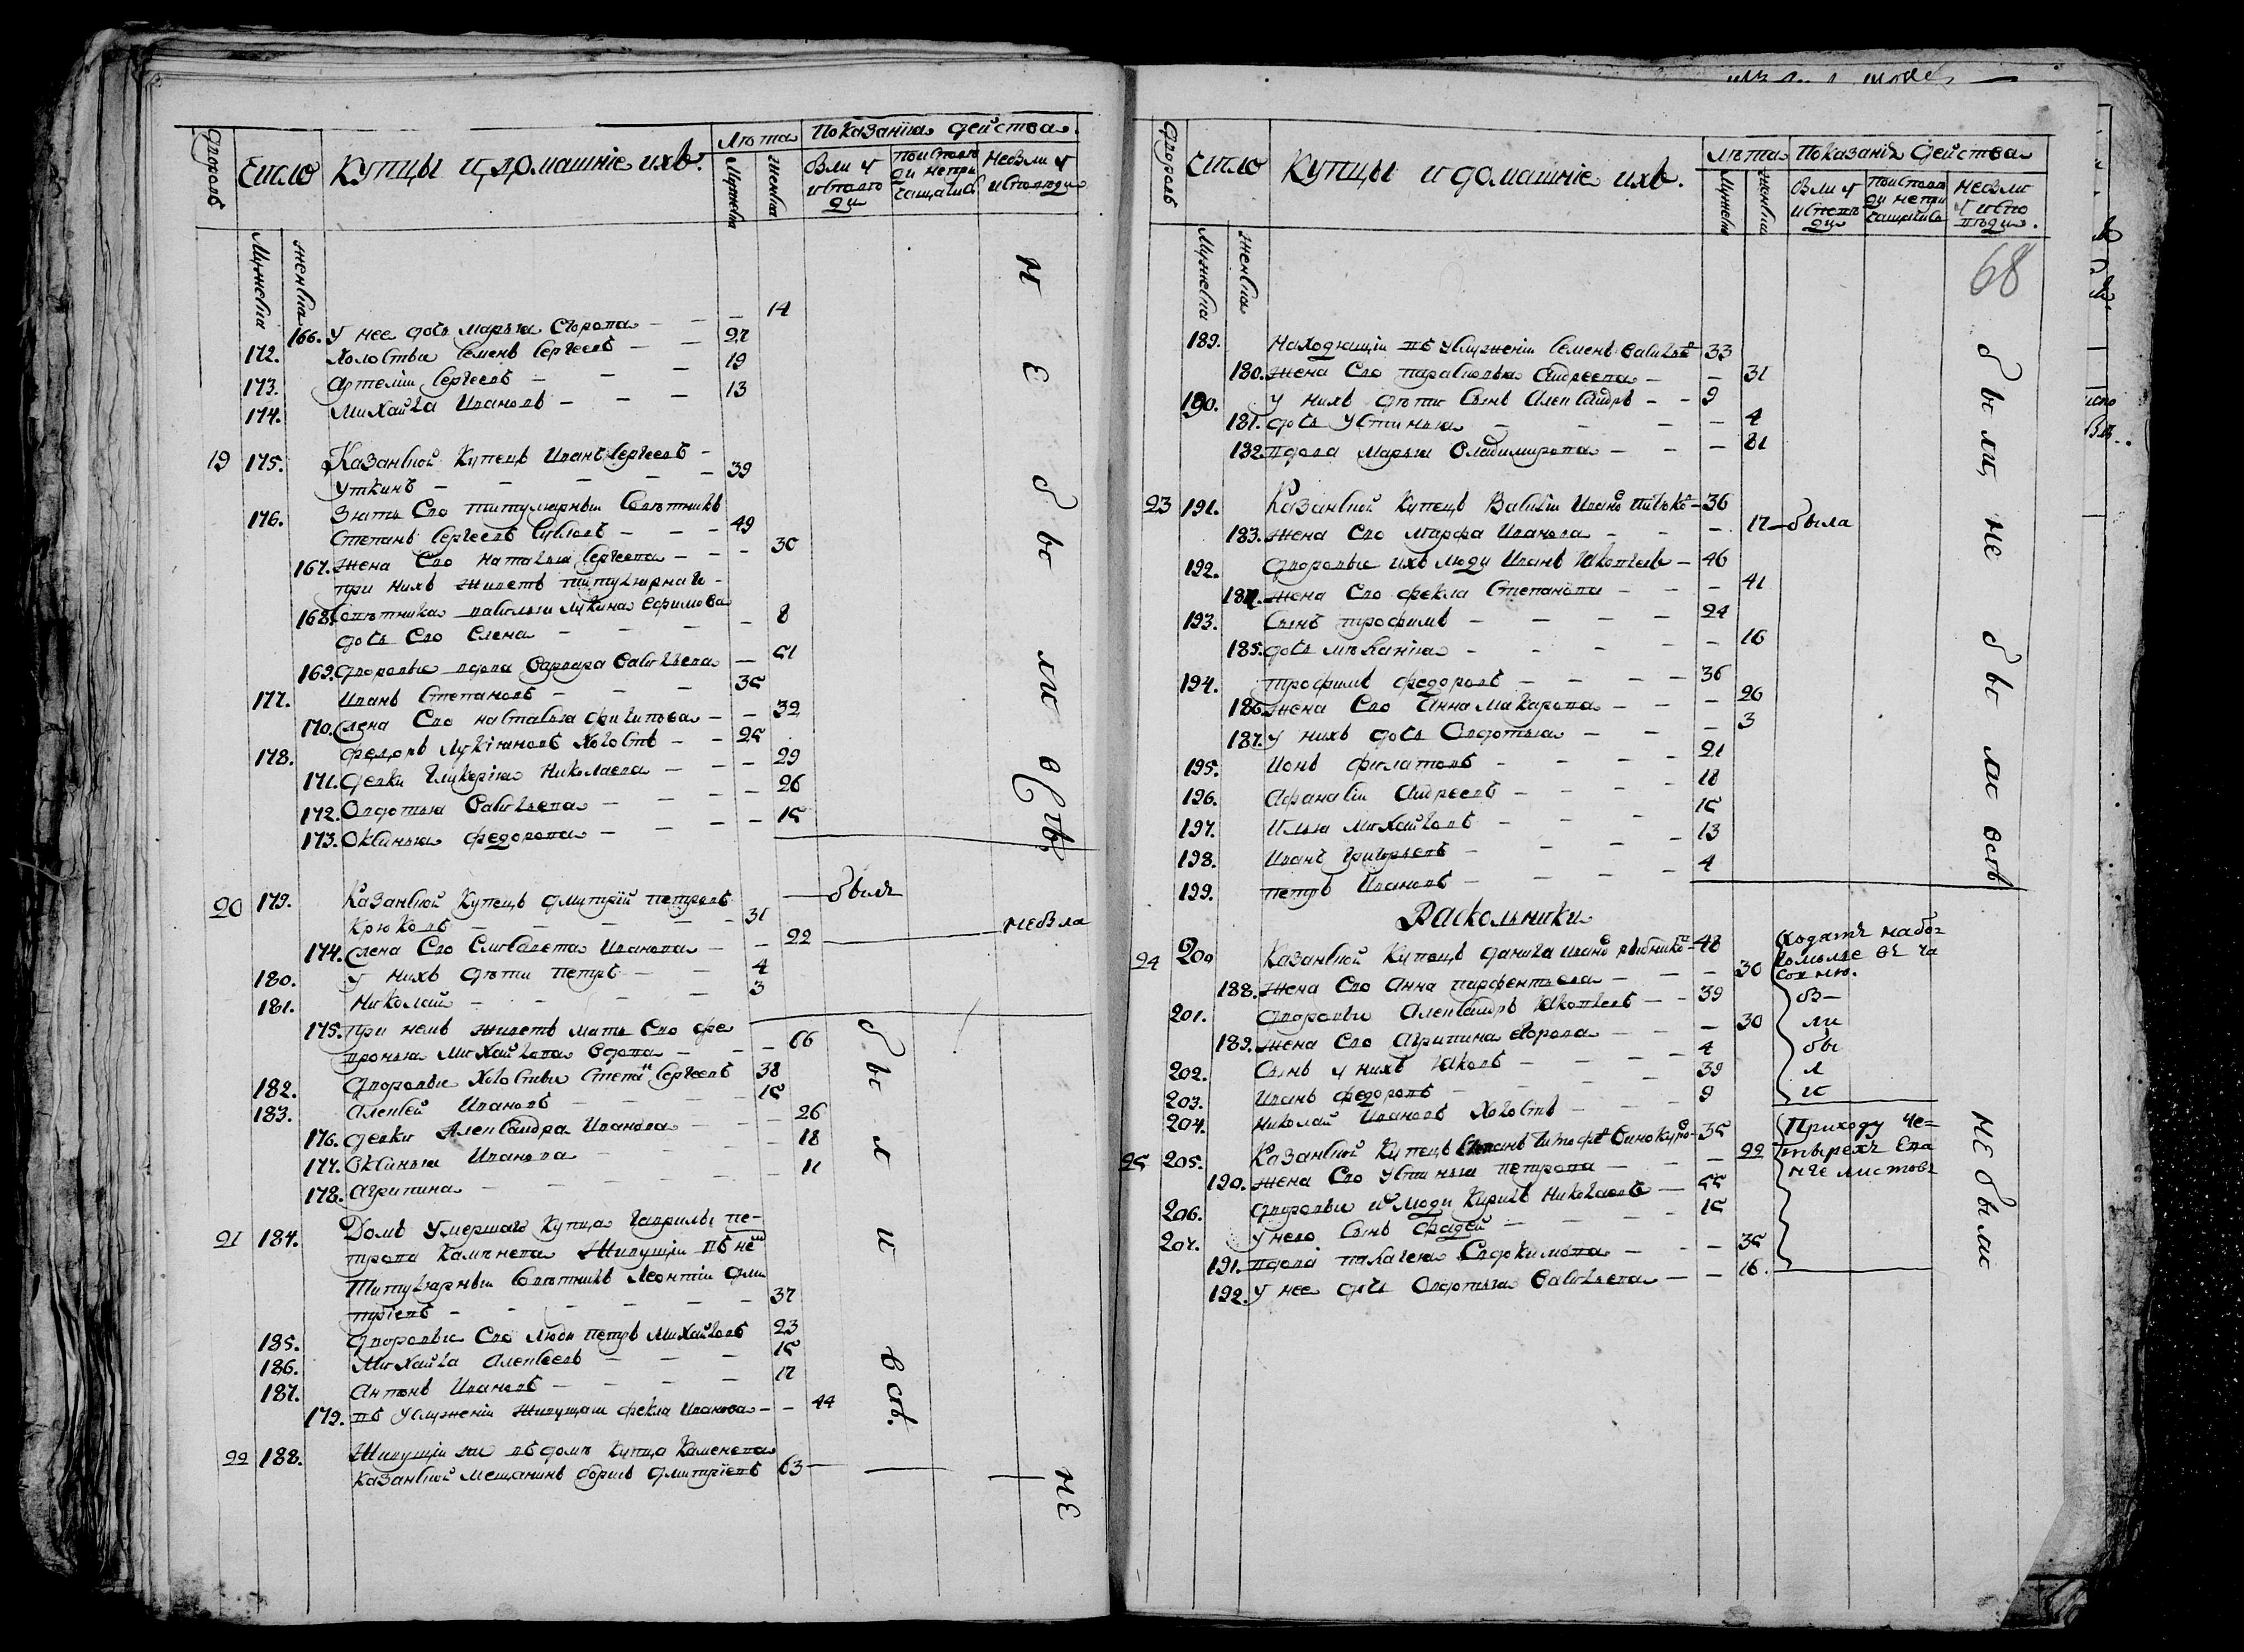 Дворовъ Число Купцы и домашніе ихъ. Лѣта Показанія действа.
Мужеска женска Мужеска женска Были у исповѣди По исповѣди непричащались Не были у исповѣди
166. У нее дочь Марья Егорова — — — 14
172. Холостыя Семенъ Сергеевъ — — 27
173. Артемій Сергеевъ — — — 19
174. Михайла Ивановъ — — — 13
19 175. Казанской Купецъ Иванъ Сергеевъ —
Уткинъ — — — — 39
176. Зять Его титулярный Совѣтникъ
Степанъ Сергеевъ — — 49
167. Жена Его Наталья Сергеева — — — 30
при нихъ живетъ титулярнаго
168. Совѣтника Ефимова
дочь Его Елена — — — — 8
169. Дворовые вдова Варвара Васильева — 51
177. Иванъ Степановъ — — — 35
170. Жена Его Настасья Филипова — — 32
178. Федоръ Лукіяновъ Холостъ — — 25
171. Девки Гликерія Николаева — — — 29
172. Авдотья Васильева — — — 26
173. Оксинья Федорова — — — 15
Не были всѣ
20 179. Казанской Купецъ Дмитрій Петровъ — былъ
Крюковъ — — — — 31
174. Жена Его Елисавета Иванова — — 22 — не была
180. У нихъ дѣти Петръ — — 4
181. Николай — — — — 3
175. При немъ живетъ мать Его Фе
вронья Михайлова вдова — — — 66
182. Дворовые Холостыя Степанъ Сергеевъ 38
183. Алексей Ивановъ — — — 15
176. Девки Александра Иванова — — — 26
177. Оксинья Иванова — — — 18
178. Агрипина — — — — 11
21 184. Домъ Умершаго Купца Гаврилы Пе-
трова Каменева Живущіи въ нем
Титулярный Совѣтникъ Леонтій Дми
тріевъ — — — — — 37
185. Дворовые Его люди Петръ Михайловъ 23
186. Михайла Алексеевъ — — — 15
187. Антонъ Ивановъ — — — — 17
179. въ услуженіи живущая Фекла Иванова — — 44
были всѣ.
22 188. Живущій же въ домѣ Купца Каменева
Казанской мещанинъ Борисъ Дмитріевъ 63 —
не
Дворовъ Число Купцы и домашніе ихъ. Лѣта Показанія действа
Мужеска женска Мужеска женска Были у исповѣди По исповѣди непричащались Не были у исповѣди.
68
189. Находящіи въ услуженіи Семенъ Васильевъ 33
180. Жена Его Парасковья Андреева — — 31
190. У нихъ дѣти Сынъ Александръ — — 9
181. дочь Устинья — — — — 4
182. вдова Марья Владимирова — — — 81
23 191. Казанской Купецъ Василій Ивановъ — 36
183. Жена Его Марфа Иванова — — — 17 — была
192. Дворовые ихъ люди Иванъ Яковлевъ — 46
184. Жена Его Фекла Степанова — — — 41
193. Сынъ Трофимъ — — — — 24
185. дочь Меланія — — — — 16
194. Трофимъ Федоровъ — — — — 36
186. Жена Его Анна Макарова — — — 26
187. У нихъ дочь Авдотья — — — 3
195. Ионъ Филатовъ — — — — 21
196. Афанасій Андреевъ — — — 18
197. Илья Михайловъ — — — — 15
198. Иванъ Григорьевъ — — — — 13
199. Петръ Ивановъ — — — — 4
были не были всѣ
Раскольники
24 200 Казанской Купецъ Данила Ивановъ Рыбниковъ — 48
188. Жена Его Анна Парфентьева — — — 30
201. Дворовые Александръ Яковлевъ — — 39
189. Жена Его Агрипина Егорова — — — 30
202. Сынъ у нихъ Яковъ — — — 4
203. Иванъ Федоровъ — — — — 39
204. Николай Ивановъ Холостъ — — — 9
Ходятъ на бого
молье въ ча
совню.
25 205. Казанской Купецъ 35
190. Жена Его Устинья Петрова — — — 22
206. Дворовые их люди Кирилъ Николаевъ — 55
207. У него Сынъ Фадей — — — 15
191. вдова Пелагея Евдокимова — — — 35
192. У нее дочь Авдотья Васильева — — 16.
Приходу Че=
тырехъ Ева
нгелистовъ
не были